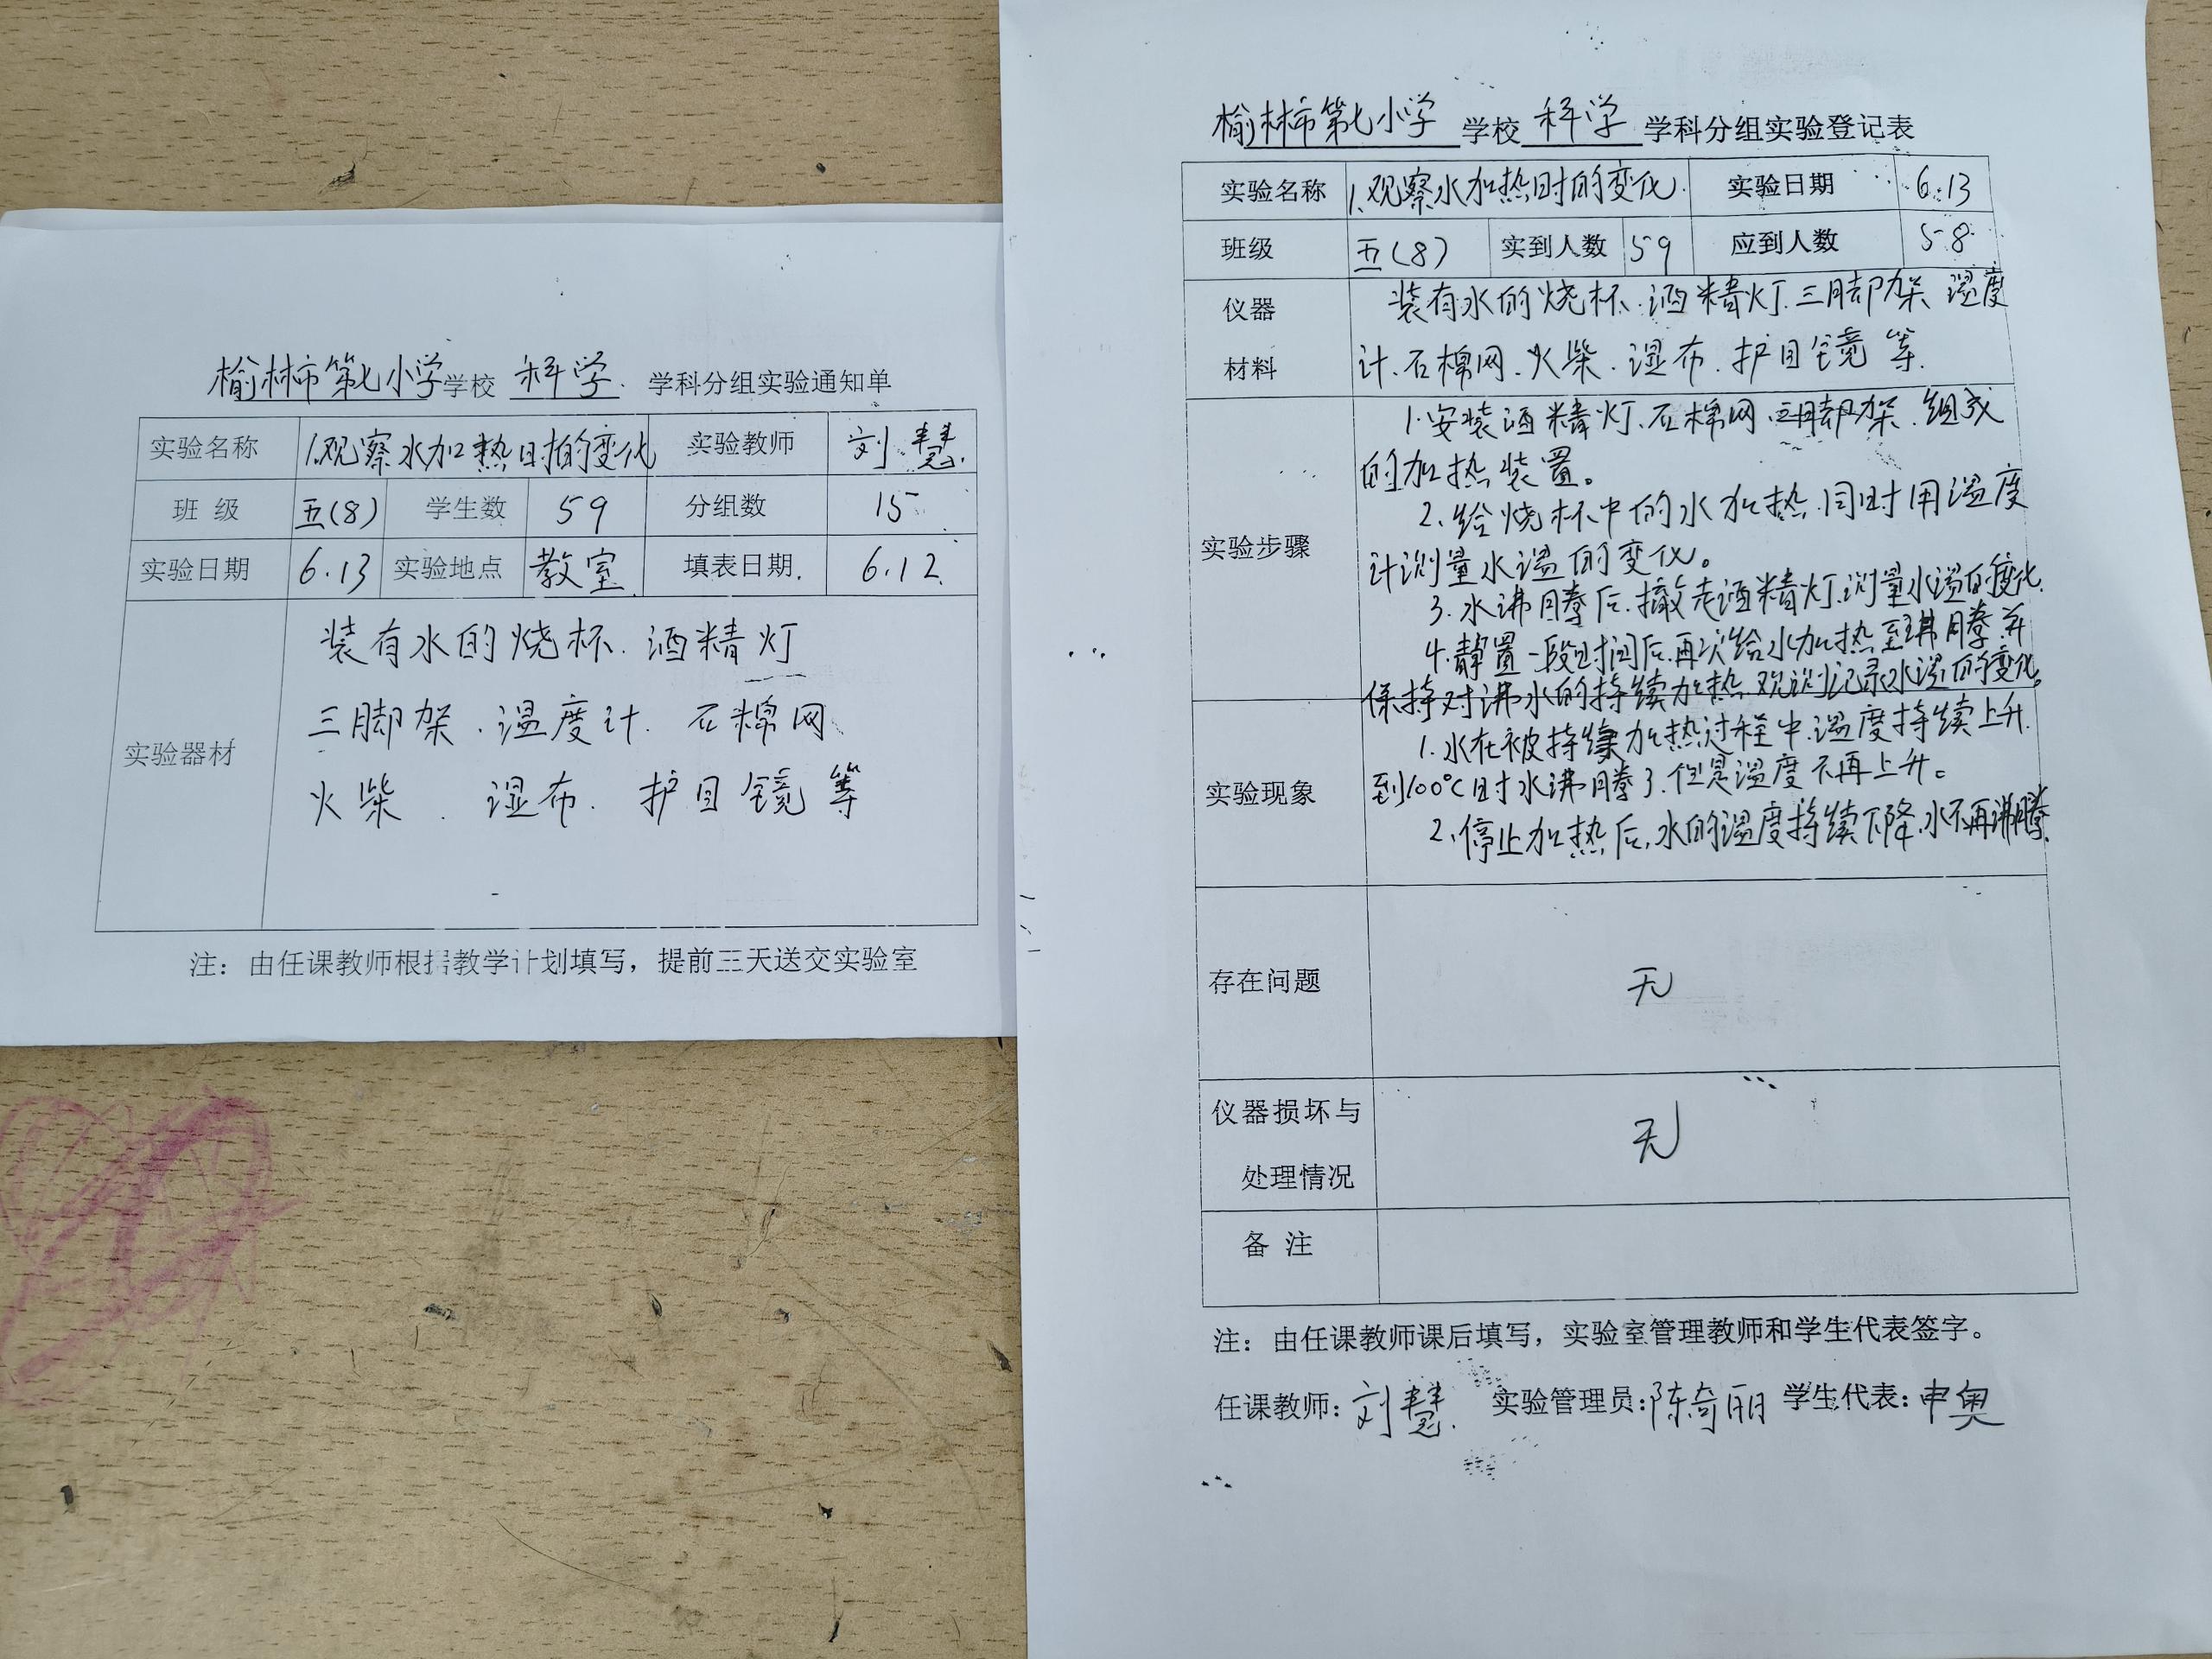 榆林市第七小学学校 科学 学科分组实验通知单
实验名称 1.观察水加热时的变化 实验教师 刘慧
班 级 五(8) 学生数 59 分组数 15
实验日期 6.13 实验地点 教室 填表日期 6.12
实验器材
装有水的烧杯.酒精灯
三脚架.温度计.石棉网
火柴.湿布.护目镜等
注：由任课教师根据教学计划填写，提前三天送交实验室
榆林市第七小学 学校 科学 学科分组实验登记表
实验名称 1.观察水加热时的变化. 实验日期 6.13
班级 五(8) 实到人数 59 应到人数 58
仪器
材料
装有水的烧杯.酒精灯.三脚架 温度
计.石棉网.火柴.湿布.护目镜等.
实验步骤
1.安装酒精灯、石棉网、三脚架.组成
的加热装置。
2.给烧杯中的水加热.同时用温度
计测量水温的变化。
3.水沸腾后.撤走酒精灯.测量水温的变化.
4.静置一段时间后.再次给水加热至沸腾并
保持对沸水的持续加热.观记录水温的变化。
实验现象
1.水在被持续加热过程中.温度持续上升.
到100℃时水沸腾了.但是温度不再上升。
2.停止加热后,水的温度持续下降.水不再沸腾.
存在问题 无
仪器损坏与
处理情况
无
备 注
注：由任课教师课后填写，实验室管理教师和学生代表签字。
任课教师：刘慧. 实验管理员：陈奇丽 学生代表：申奥